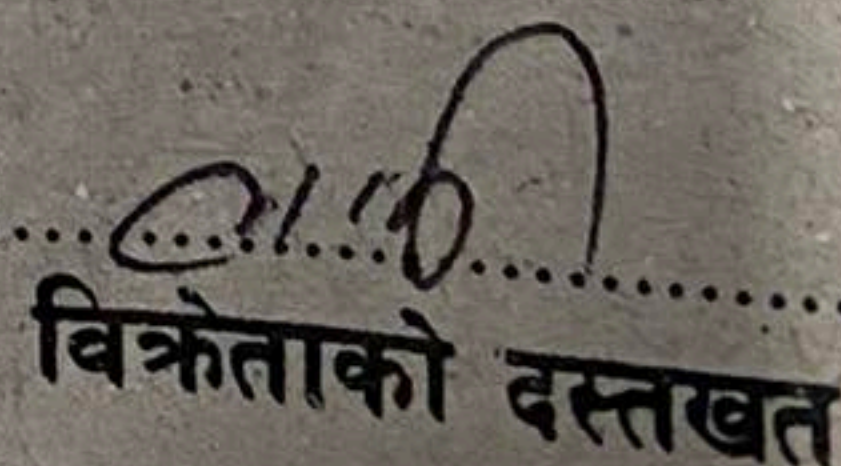 विक्रेताको दस्तखत